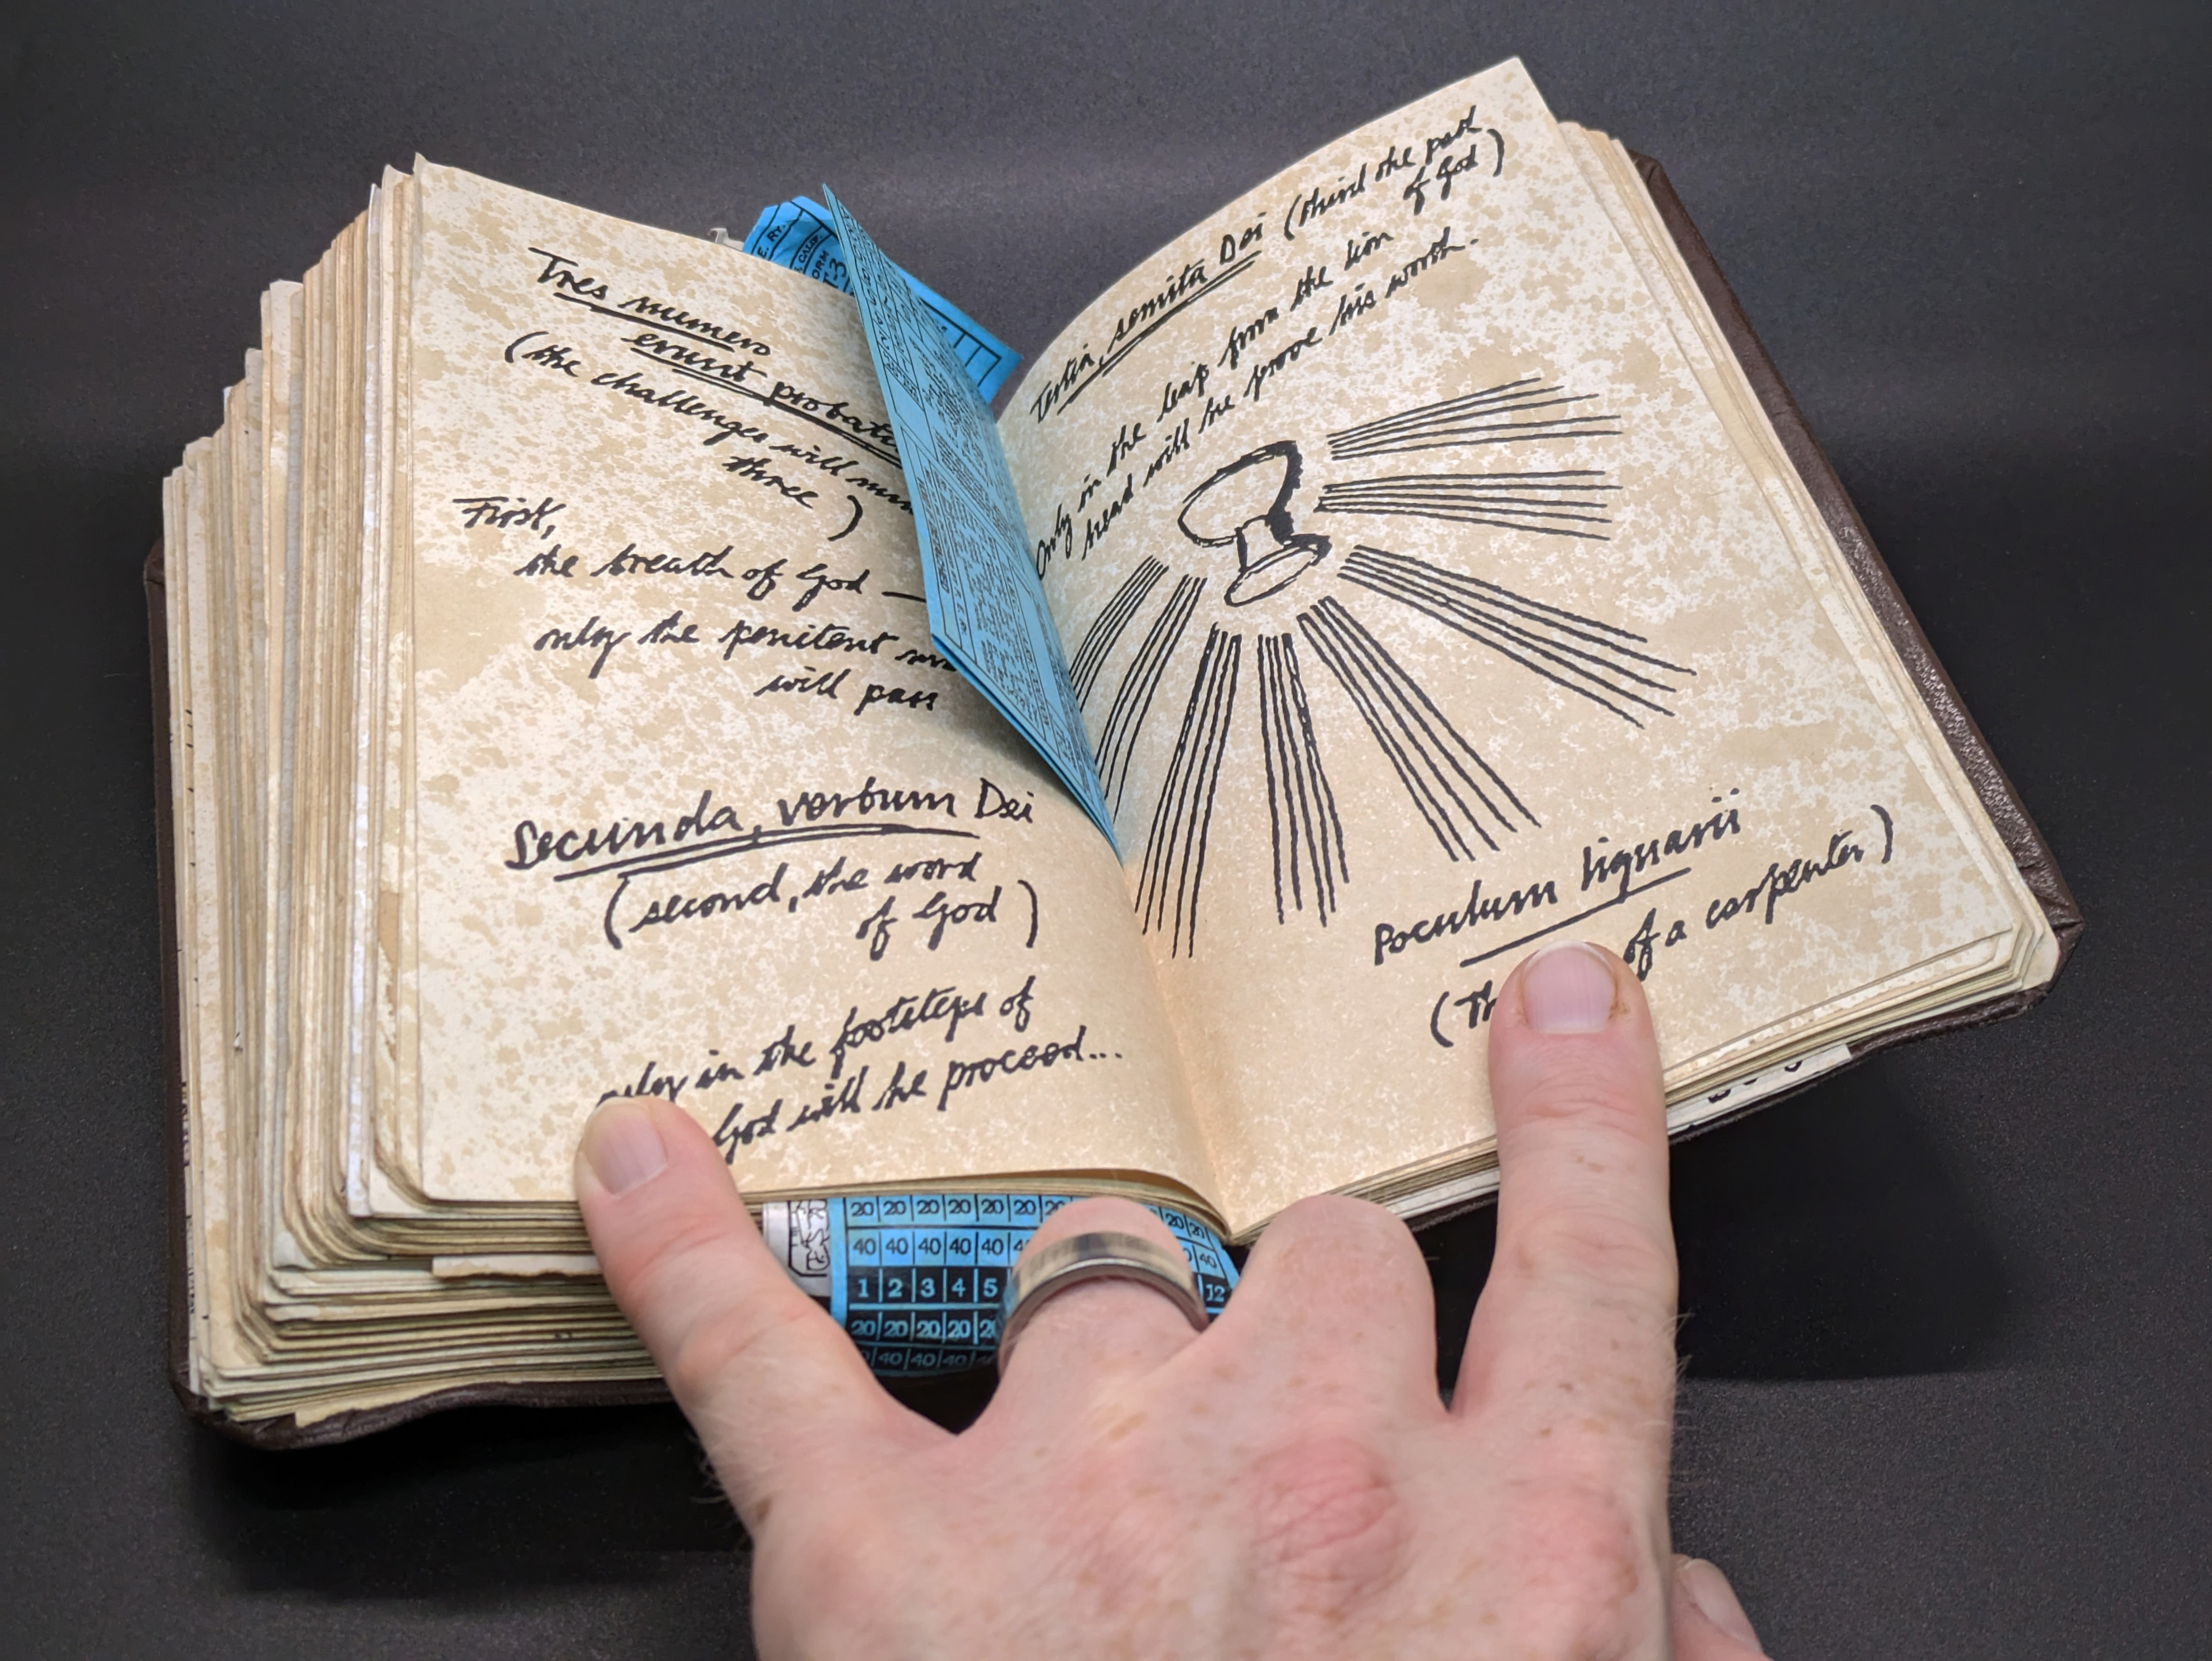 Tres numero
erunt probati
(the challenges will num
three)
First,
the breath of God —
only the penitent ma
will pass
Secunda, verbum Dei
(second, the word
of God)
only in the footsteps of
God will he proceed...
Tertia, semita Dei (third the path
of God)
Only in the leap from the lion
head will he prove his worth.
Poculum lignarii
(Th of a carpenter)
E. RY.
CALIF.
20 20 20 20 20 20 20 20 20
40 40 40 40 40 4 0 40
1 2 3 4 5 12
20 20 20 20 2
40 40 40